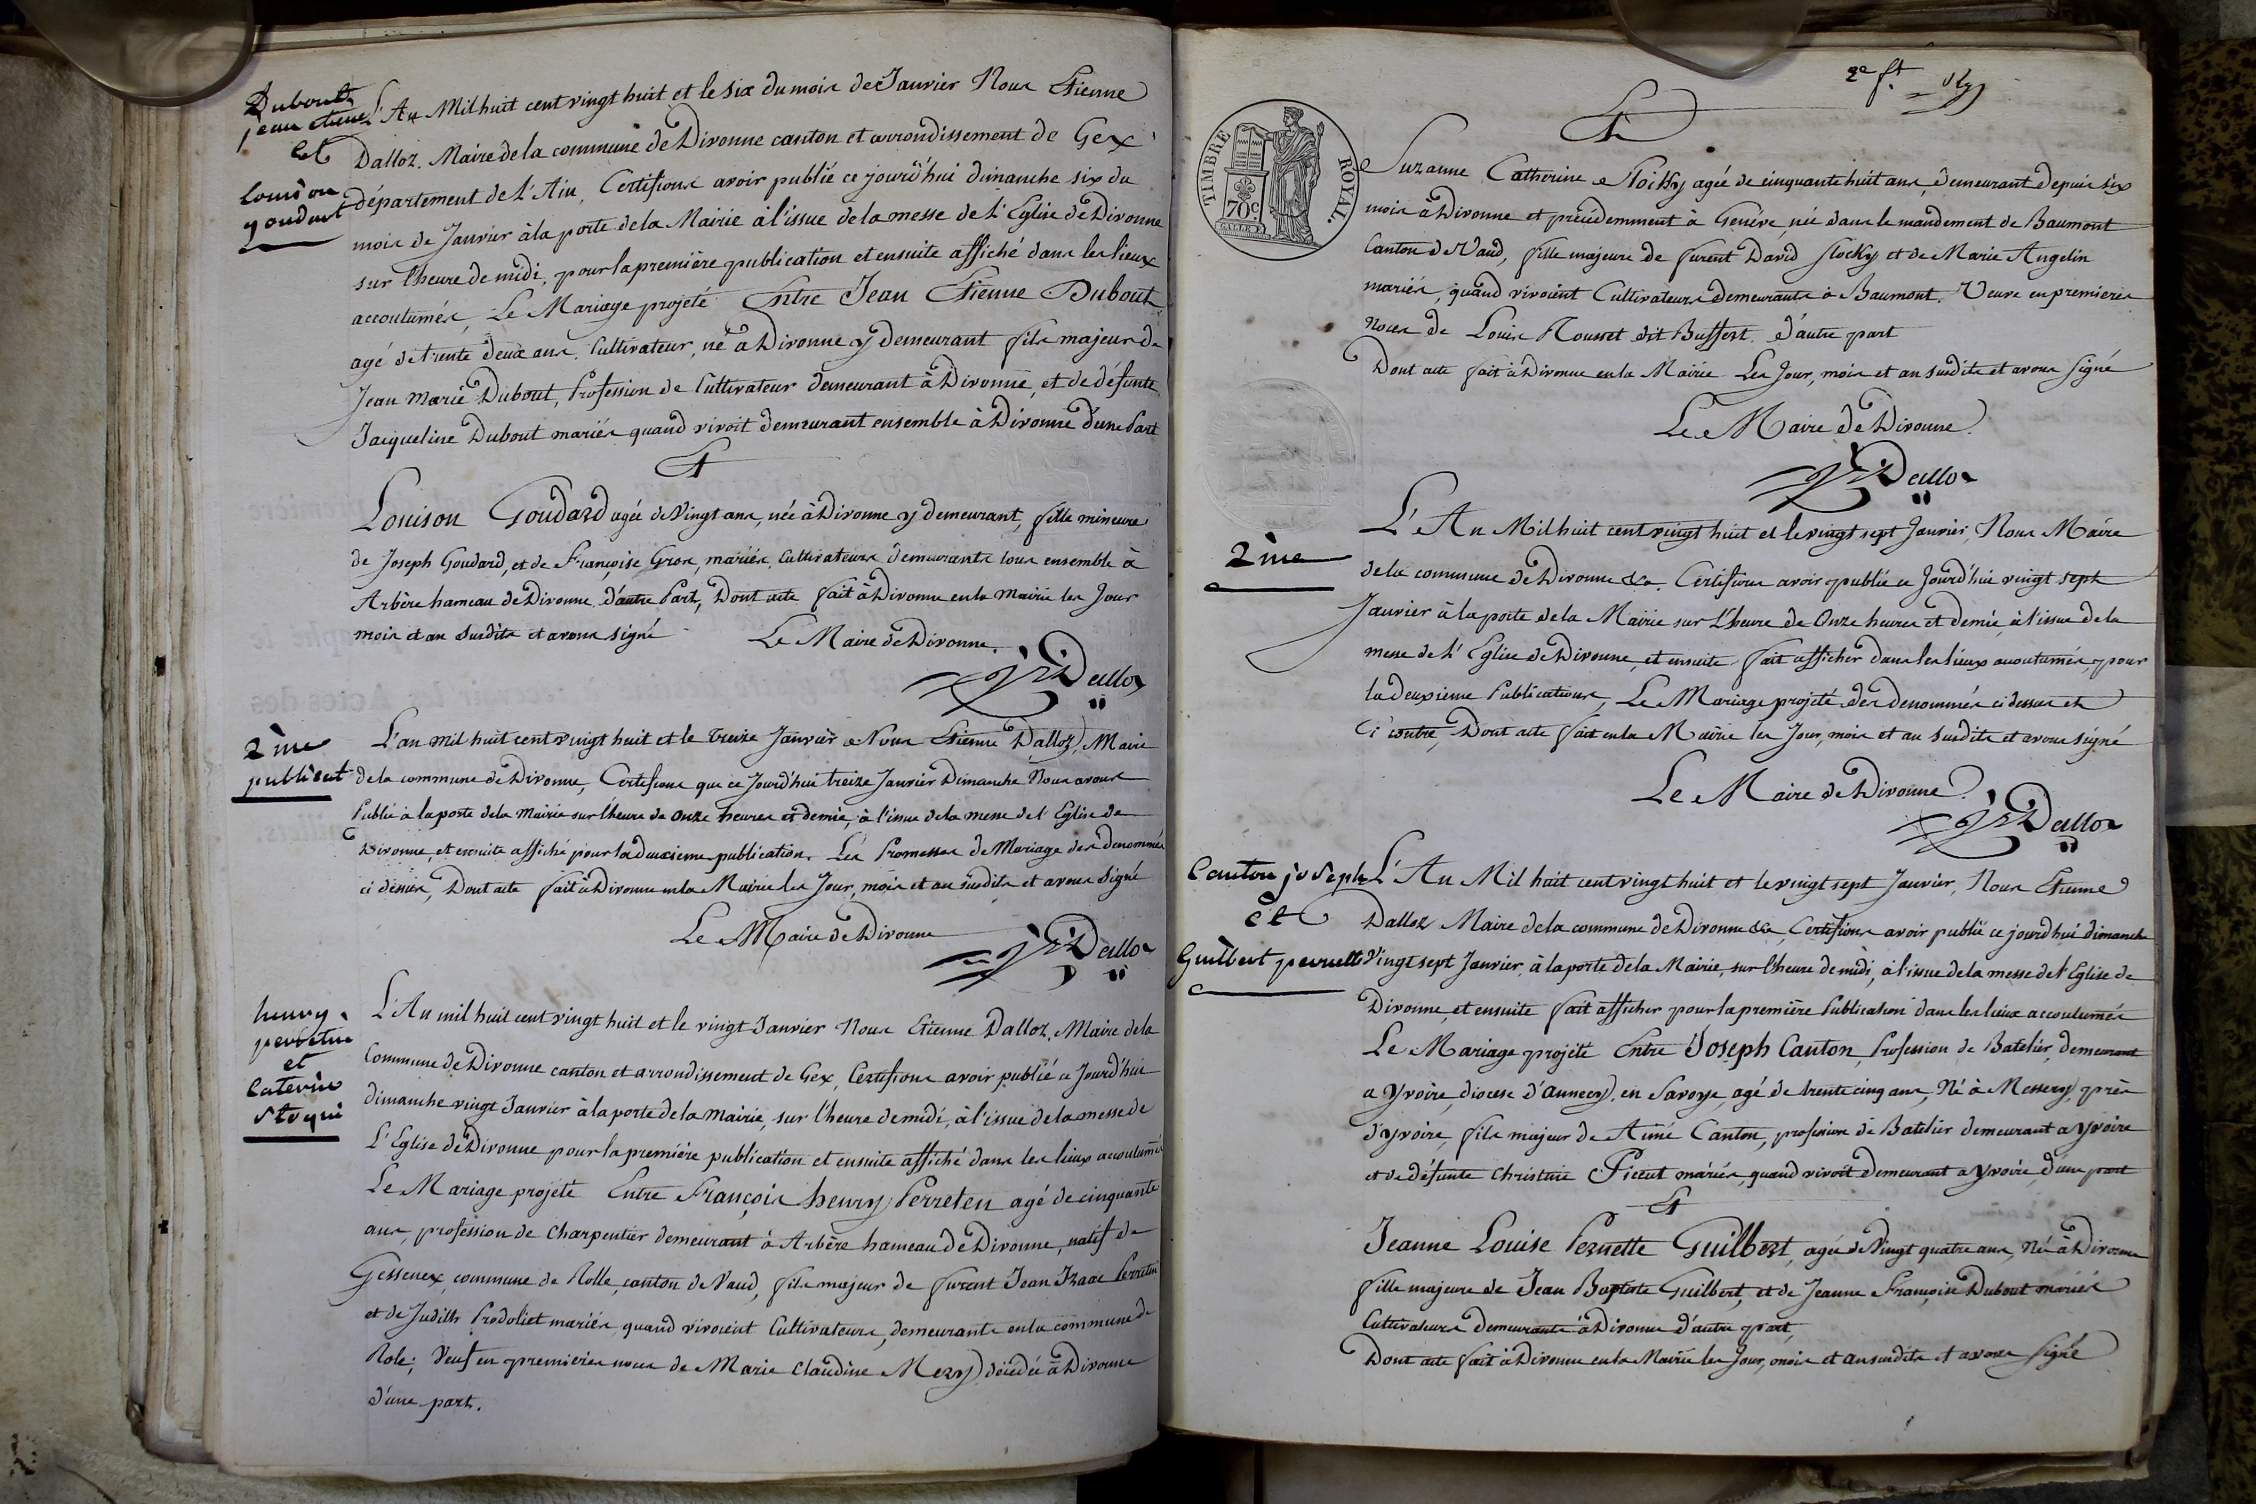 Dubout
jean etiene
et
Louison
goudart
L'An Mil huit cent vingt huit et le six du mois de Janvier Nous Etienne
Dalloz, Maire de la commune de Divonne canton et arrondissement de Gex
département de L'Ain, Certifions avoir publié ce jourd'hui dimanche six du
mois de Janvier à la porte de la Mairie à l'issue de la messe de L'Eglise de Divonne
sur l'heure de midi, pour la première publication et ensuite affiché dans les lieux
accoutumés, Le Mariage projeté Entre Jean Etienne Dubout
agé de trente deux ans, Cultivateur, né à Divonne y demeurant fils majeur de
Jean Marie Dubout, Profession de Cultivateur demeurant à Divonne, et de défunte
Jacqueline Dubout mariés quand vivoit demeurant ensemble à Divonne d'une Part
Et
Louison Goudard agée de Vingt ans, née à Divonne y demeurant, fille mineure
de Joseph Goudard, et de Françoise Gros, mariés, Cultivateurs demeurants tous ensemble à
Arbère hameau de Divonne d'autre Part, Dont acte fait à Divonne en la Mairie les Jour
mois et an Susdits et avons signé Le Maire de Divonne
Dalloz
2ème
publicat
L'an mil huit cent vingt huit et le treize Janvier Nous Etienne Dalloz, Maire
de la commune de Divonne, Certifions que ce Jourd'hui treize Janvier Dimanche Nous avons
Publié à la porte de la Mairie sur l'heure de Onze heures et demie, à l'issue de la messe de l'Eglise de
Divonne, et ensuite affiché pour la deuxieme publication, Les Promesses de Mariage des denommés
ci dessus, Dont acte fait à Divonne en la Mairie les Jour, mois et an susdits et avons Signé
Le Maire de Divonne
Dalloz
henry
perretin
et
Caterine
Stoqui
L'An mil huit cent vingt huit et le vingt Janvier Nous Etienne Dalloz, Maire de la
Commune de Divonne canton et arrondissement de Gex, Certifions avoir publié ce Jourd'hui
dimanche vingt Janvier à la porte de la Mairie, sur l'heure de midi, à l'issue de la messe de
L'Eglise de Divonne pour la première publication et ensuite affiché dans les lieux accoutumés
Le Mariage projeté Entre François henry Perreten agé de cinquante
ans, profession de Charpentier demeurant à Arbère hameau de Divonne, natif de
Gessenex, commune de Rolle, canton de Vaud, fils majeur de furent Jean Isaac Perreten
et de Judith Prodoliet mariés quand vivoient Cultivateurs, demeurants en la commune de
Role; Veuf en premieres noces de Marie Claudine Mery décédée à Divonne
d'une part.
2e ft.
TIMBRE ROYAL.
70c.
Et
Suzanne Catherine Stocky agée de cinquante huit ans, demeurant depuis six
mois à Divonne et précédemment à Genève, née dans le mandement de Baumont
Canton de Vaud, fille majeure de furent David Stocky et de Marie Angelin
mariés, quand vivoient Cultivateurs demeurants à Baumont. Veuve en premieres
Noces de Louis Rousset dit Buffert d'autre part
Dont acte fait à Divonne en la Mairie Les Jour, mois et an susdits et avons Signé
Le Maire de Divonne.
Dalloz
2ème
L'An Mil huit cent vingt huit et le vingt sept Janvier, Nous Maire
de la commune de Divonne &a. Certifions avoir publié ce Jourd'hui vingt sept
Janvier à la porte de la Mairie sur l'heure de Onze heures et demie, à l'issue de la
messe de L'Eglise de Divonne, et ensuite fait afficher dans les lieux accoutumés, pour
la deuxieme Publication, Le Mariage projeté des denommés ci dessus et
ci contre, Dont acte fait en la Mairie les Jour, mois et an Susdits et avons signé
Le Maire de Divonne
Dalloz
Canton joseph
et
Guilbert pernette
L'An Mil huit cent vingt huit et le vingt sept Janvier, Nous Etienne
Dalloz Maire de la commune de Divonne &a, Certifions avoir publié ce jourd'hui dimanche
Vingt sept Janvier, à la porte de la Mairie, sur l'heure de midi, à l'issue de la messe de l'Eglise de
Divonne, et ensuite fait afficher pour la première Publication dans les lieux accoutumés
Le Mariage projeté Entre Joseph Canton, Profession de Batelier, demeurant
a Yvoire, diocèse d'annecy, en Savoye, agé de trente cinq ans, Né à Messery, près
d'Yvoire, fils majeur de Aimé Canton, profession de Batelier demeurant a Yvoire
et de défunte Christine Piccut mariés, quand vivoit demeurant a Yvoire, d'une part
Et
Jeanne Louise Pernette Guilbert, agée de Vingt quatre ans, Né à Divonne
fille majeure de Jean Baptiste Guilbert, et de Jeanne Françoise Dubout mariés
Cultivateurs demeurants à Divonne d'autre part,
Dont acte fait à Divonne en la Mairie les Jour, mois et an susdits et avons Signé